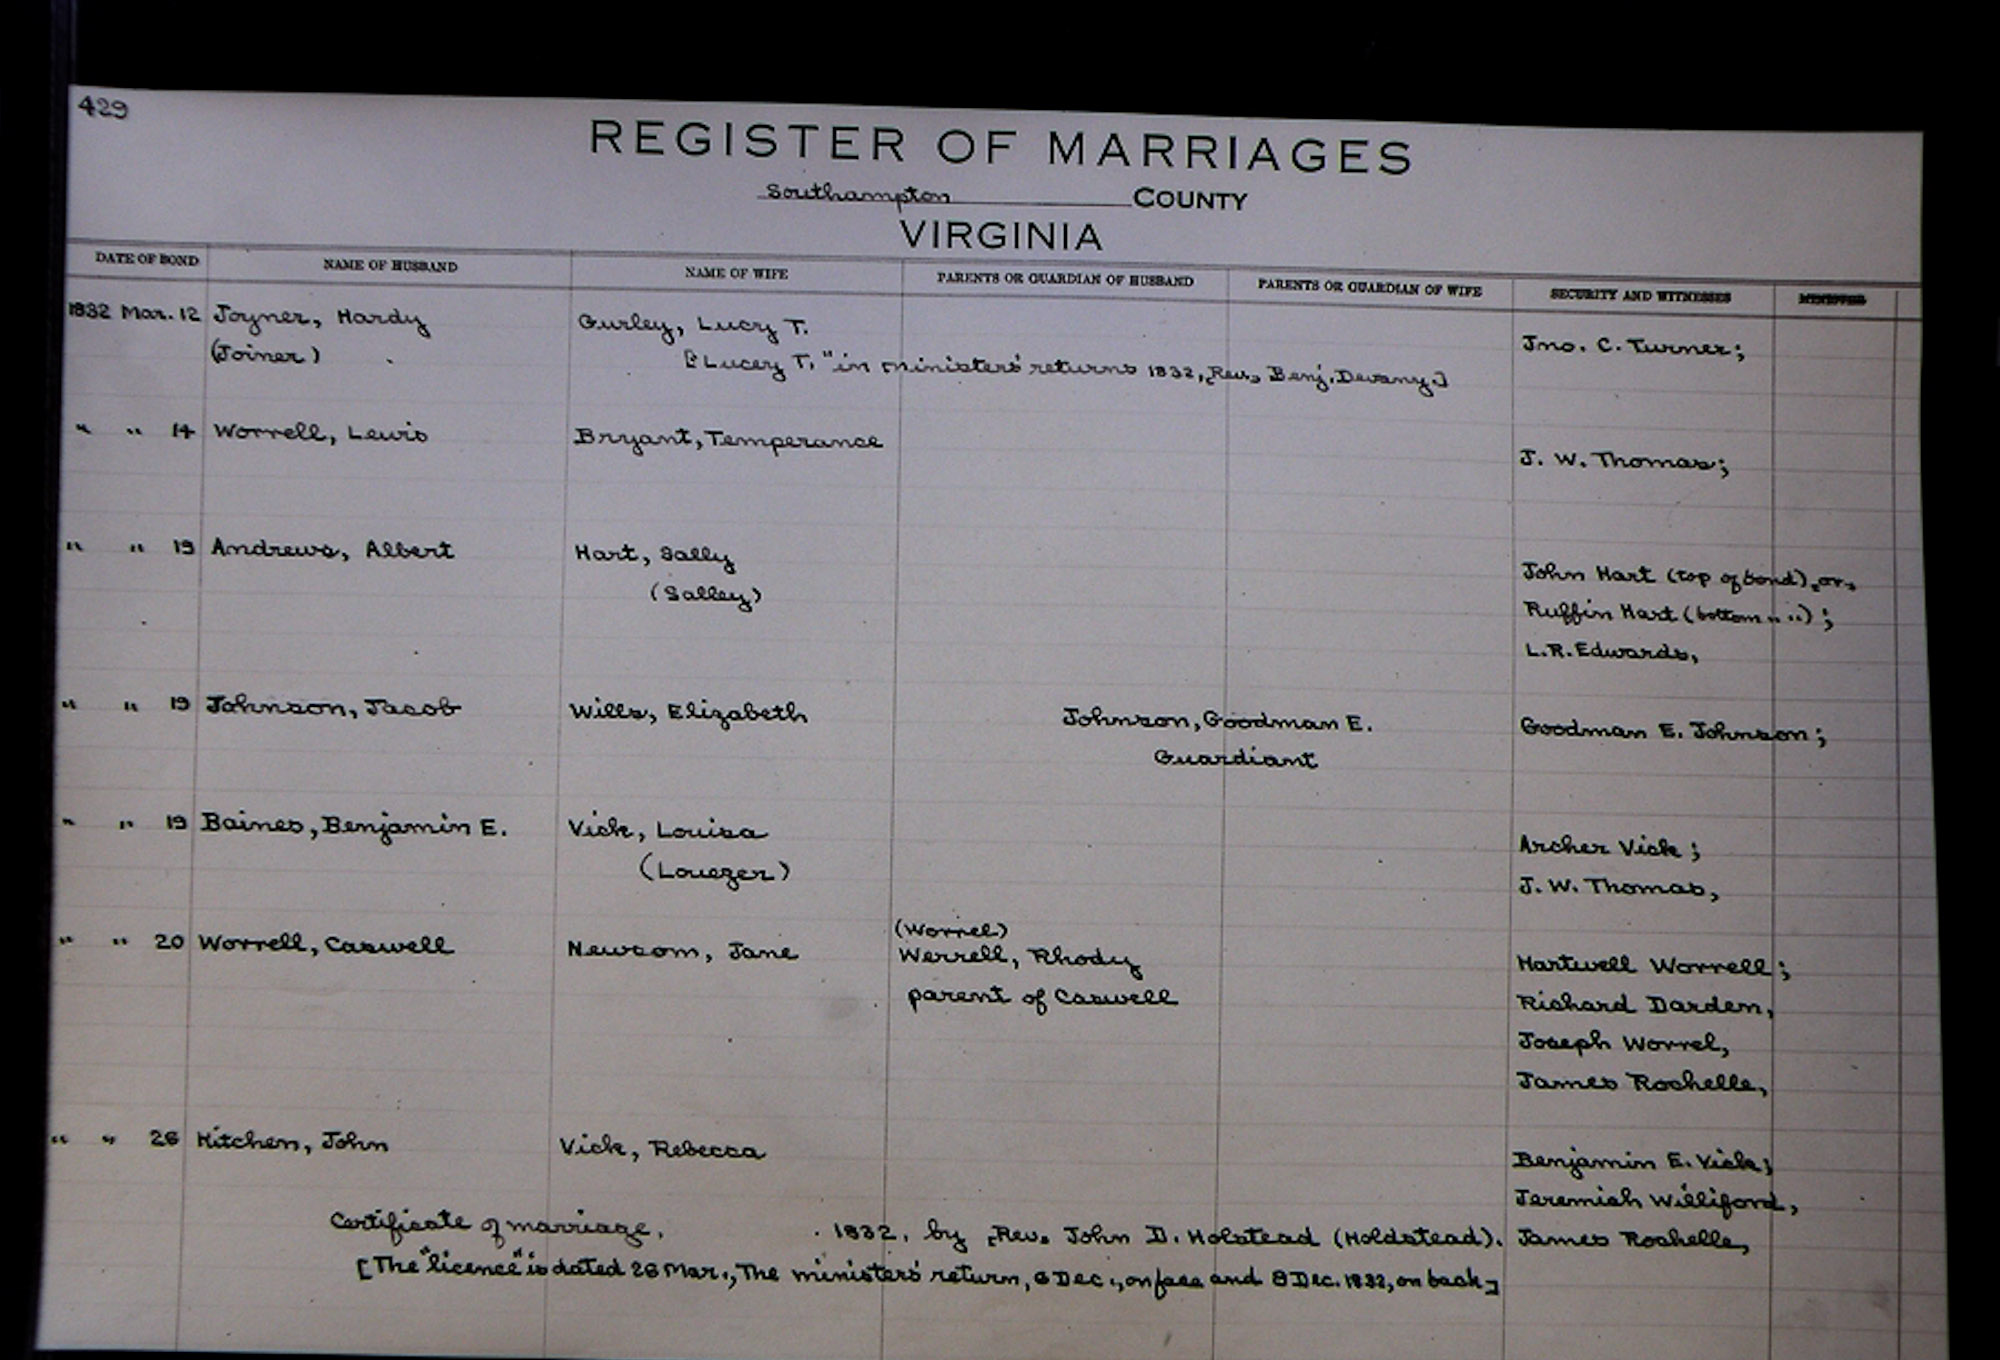 429
REGISTER OF MARRIAGES
Southampton COUNTY
VIRGINIA
DATE OF BOND NAME OF HUSBAND NAME OF WIFE PARENTS OR GUARDIAN OF HUSBAND PARENTS OR GUARDIAN OF WIFE SECURITY AND WITNESSES MINISTER
1832 Mar. 12 Joyner, Hardy Gurley, Lucy T.
Jno. C. Turner;
(Joiner) ["Lucey T." in ministers' returns 1832, [Rev.] Benj. Devany.]
" " 14 Worrell, Lewis Bryant, Temperance
J. W. Thomas;
" " 19 Andrews, Albert Hart, Sally
John Hart (top of bond), [or]
(Salley) Ruffin Hart (bottom " ");
L.R. Edwards,
" " 19 Johnson, Jacob Wills, Elizabeth Johnson, Goodman E. Goodman E. Johnson;
Guardiant
" " 19 Baines, Benjamin E. Vick, Louisa
Archer Vick;
(Louezer) J. W. Thomas,
(Worrel)
" " 20 Worrell, Caswell Newsom, Jane Werrell, Rhody Hartwell Worrell;
parent of Caswell Richard Darden,
Joseph Worrel,
James Rochelle,
" " 26 Kitchen, John Vick, Rebecca
Benjamin E. Vick;
Jeremiah Williford,
Certificate of marriage, . 1832, by [Rev.] John D. Holstead (Holdstead). James Rochelle,
[The "licence" is dated 26 Mar., The ministers' return, 6 Dec., on face and 8 Dec. 1832, on back]